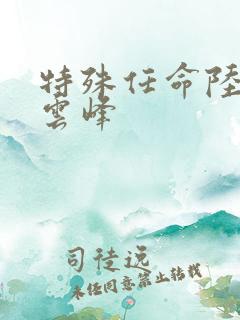 特殊任命陸
雲峰
司徒逸
未经同意禁止转载